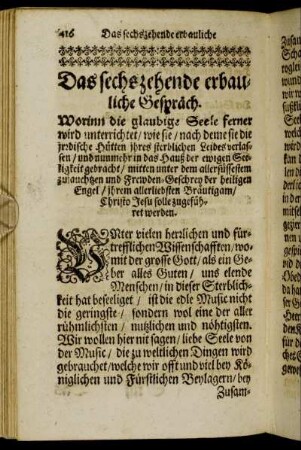 416 Das sechszehende erbauliche
Das sechszehende erbau-
liche Gespräch.
Worinn die glaubige Seele ferner
wird unterrichtet / wie sie / nach deme sie die
jrdische Hütten jhres sterblichen Leibes verlas-
sen / und nunmehr in das Hauß der ewigen See-
ligkeit gebracht / mitten unter dem allersüssestem
zujauchtzen und Frewden-Geschrey der heiligen
Engel / jhrem allerliebsten Bräutigam /
Christo Jesu solle zugefüh-
ret werden.
UNter vielen herrlichen und für-
trefflichen Wissenschafften / wo-
mit der grosse Gott / als ein Ge-
ber alles Guten / uns elende
Menschen / in dieser Sterblich-
keit hat beseeliget / ist die edle Music nicht
die geringste / sondern wol eine der aller
rühmlichsten / nutzlichen und nöhtigsten.
Wir wollen hier nit sagen / liebe Seele von
der Music / die zu weltlichen Dingen wird
gebrauchet / welche wir offt und viel bey Kö-
niglichen und Fürstlichen Beylagern / bey
Zusam-